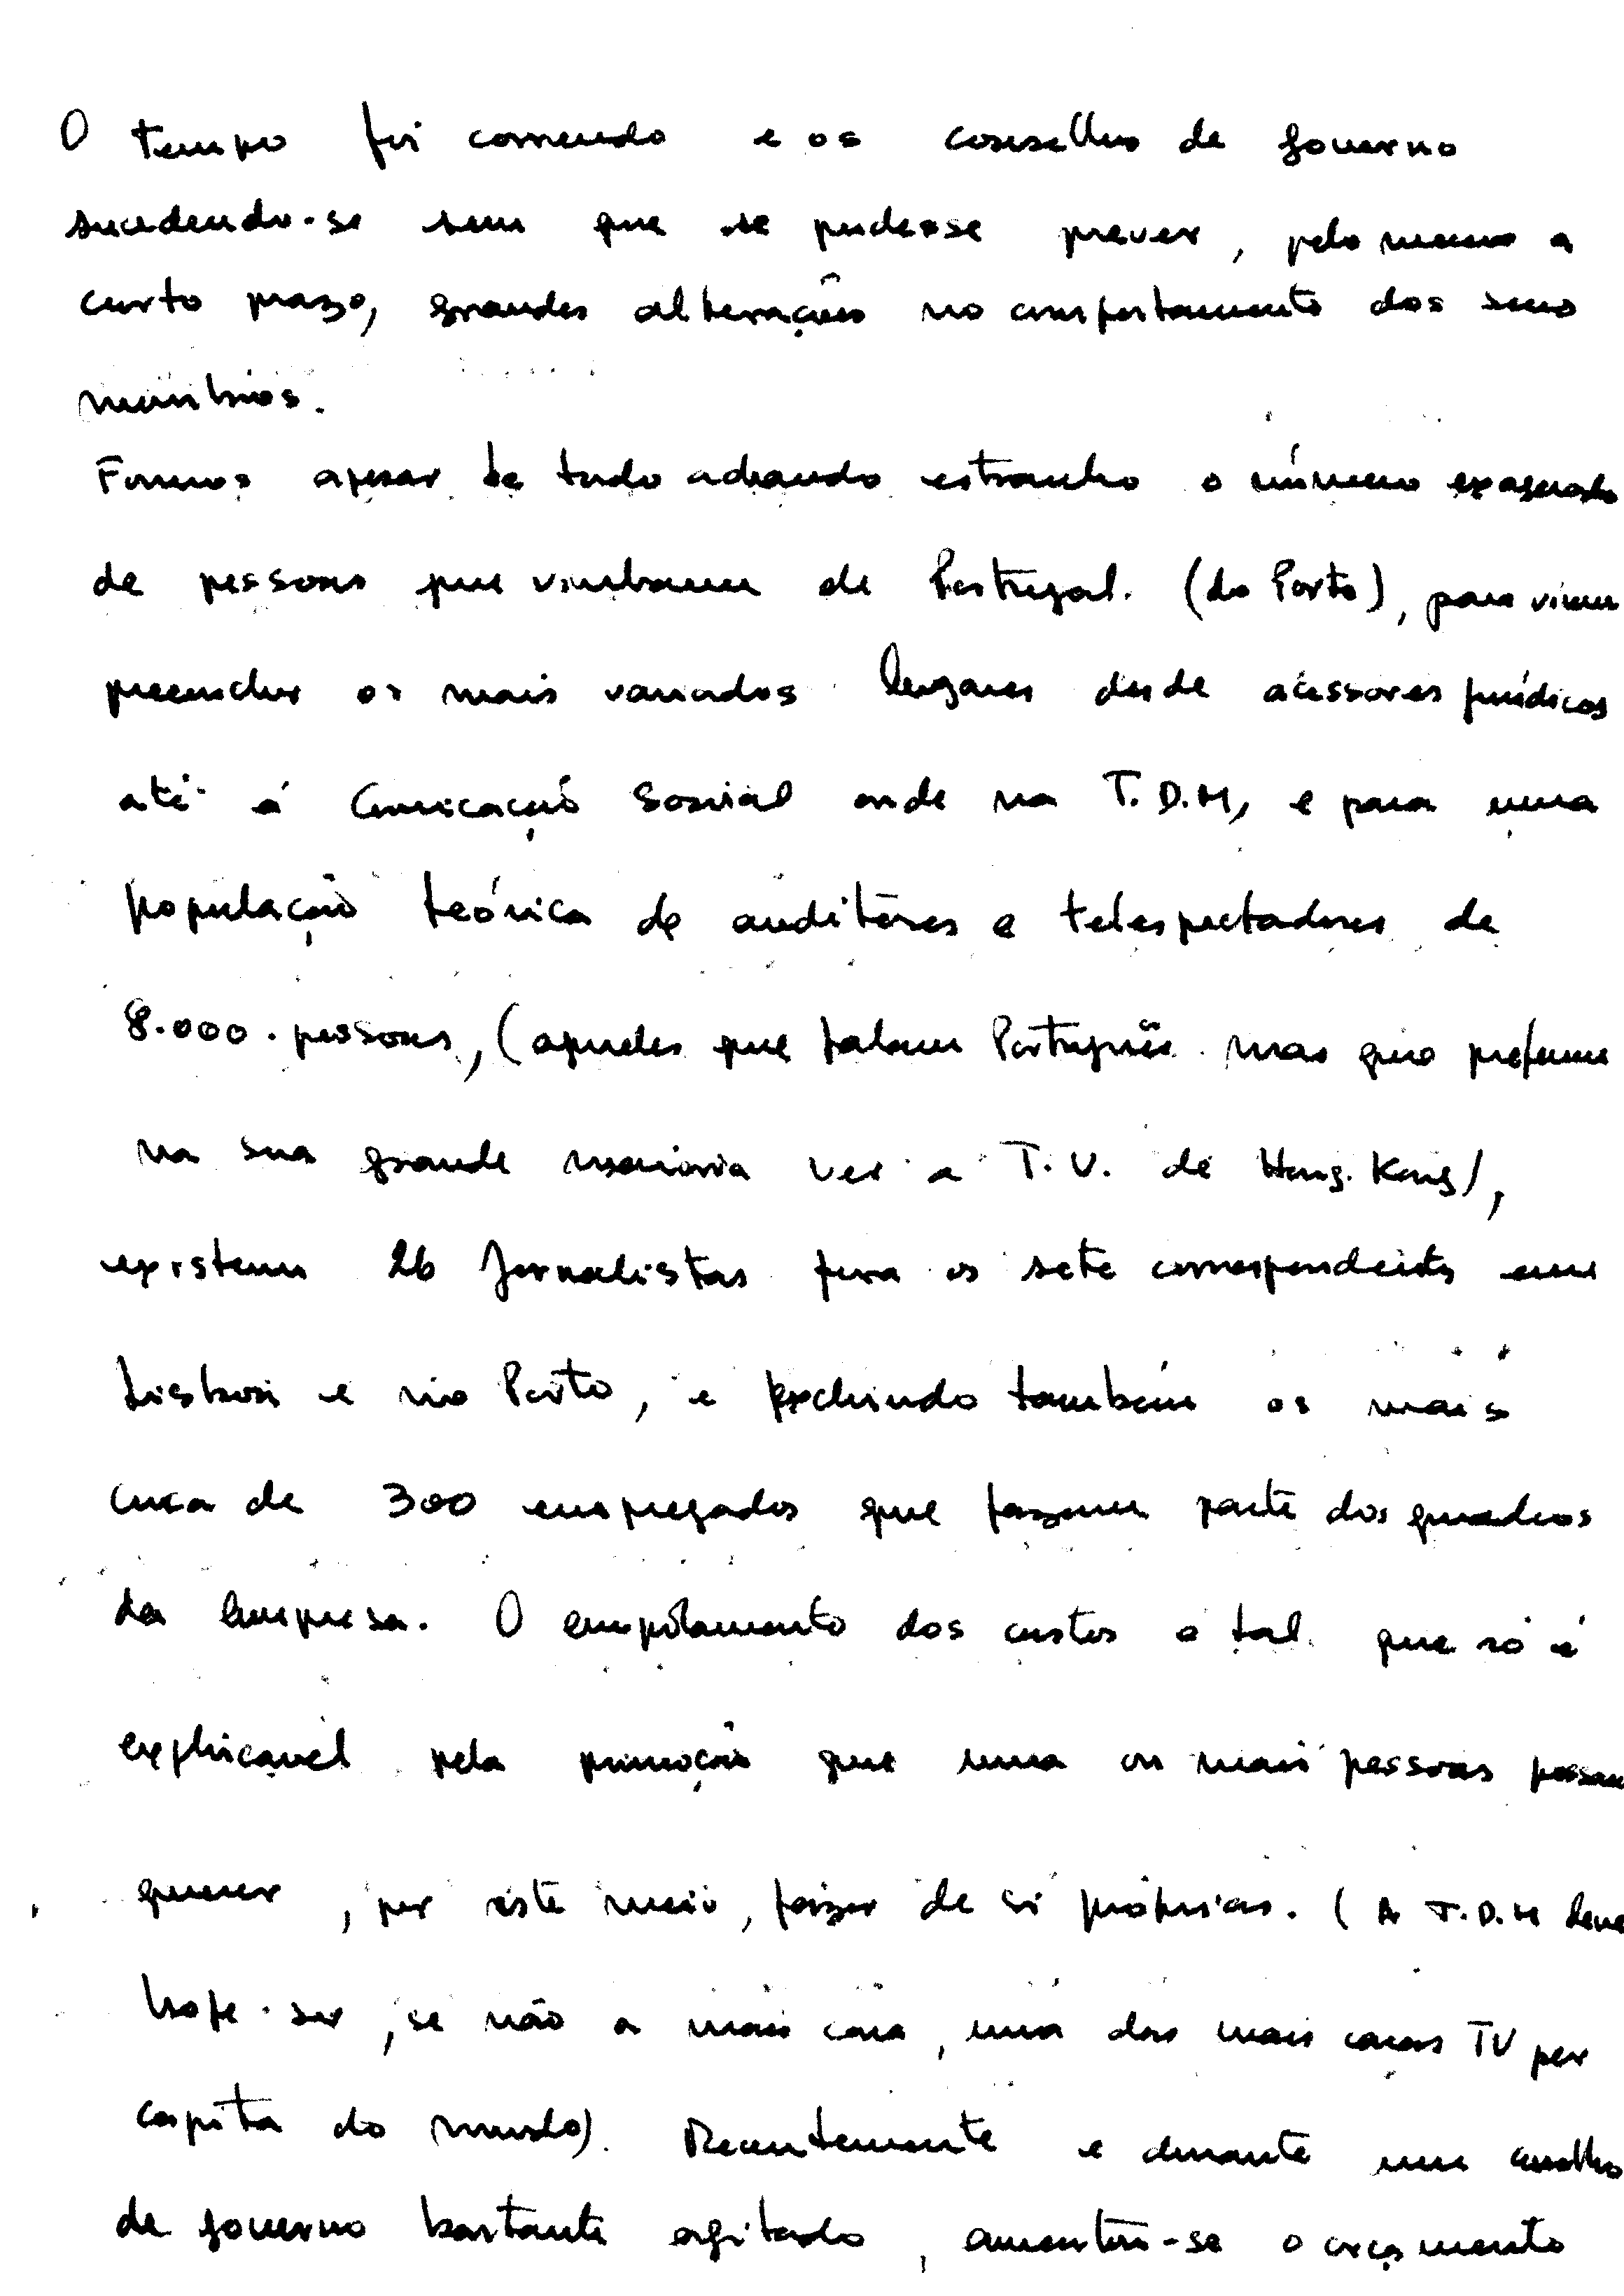 O tempo foi correndo e os conselhos de governo
sucedendo-se sem que se pudesse prever, pelo menos a
curto prazo, grandes alterações no comportamento dos seus
membros.
Fomos apesar de tudo achando estranho o número exagerado
de pessoas que vinham de Portugal. (do Porto), para virem
preencher os mais variados lugares desde acessores jurídicos
até á Comicação Social onde na T.D.M, e para uma
população teórica de auditores e telespectadores de
8.000. pessoas, (aqueles que falam Português mas que preferem
na sua grande maioria ver a T.V. de Hong. Kong),
existem 26 Jornalistas fora os sete correspondentes em
Lisboa e no Porto, e excluindo também os mais
cerca de 300 empregados que fazem parte dos quadros
da Empresa. O empolamento dos custos é tal que só é
explicavel pela promoção que uma ou mais pessoas possam
querer, por este meio, fazer de si próprias. (A T.D.M deve
hoje ser, se não a mais cara, uma das mais caras TV per
capita do mundo). Recentemente e durante um conselho
de governo bastante agitado, aumentou-se o orçamento